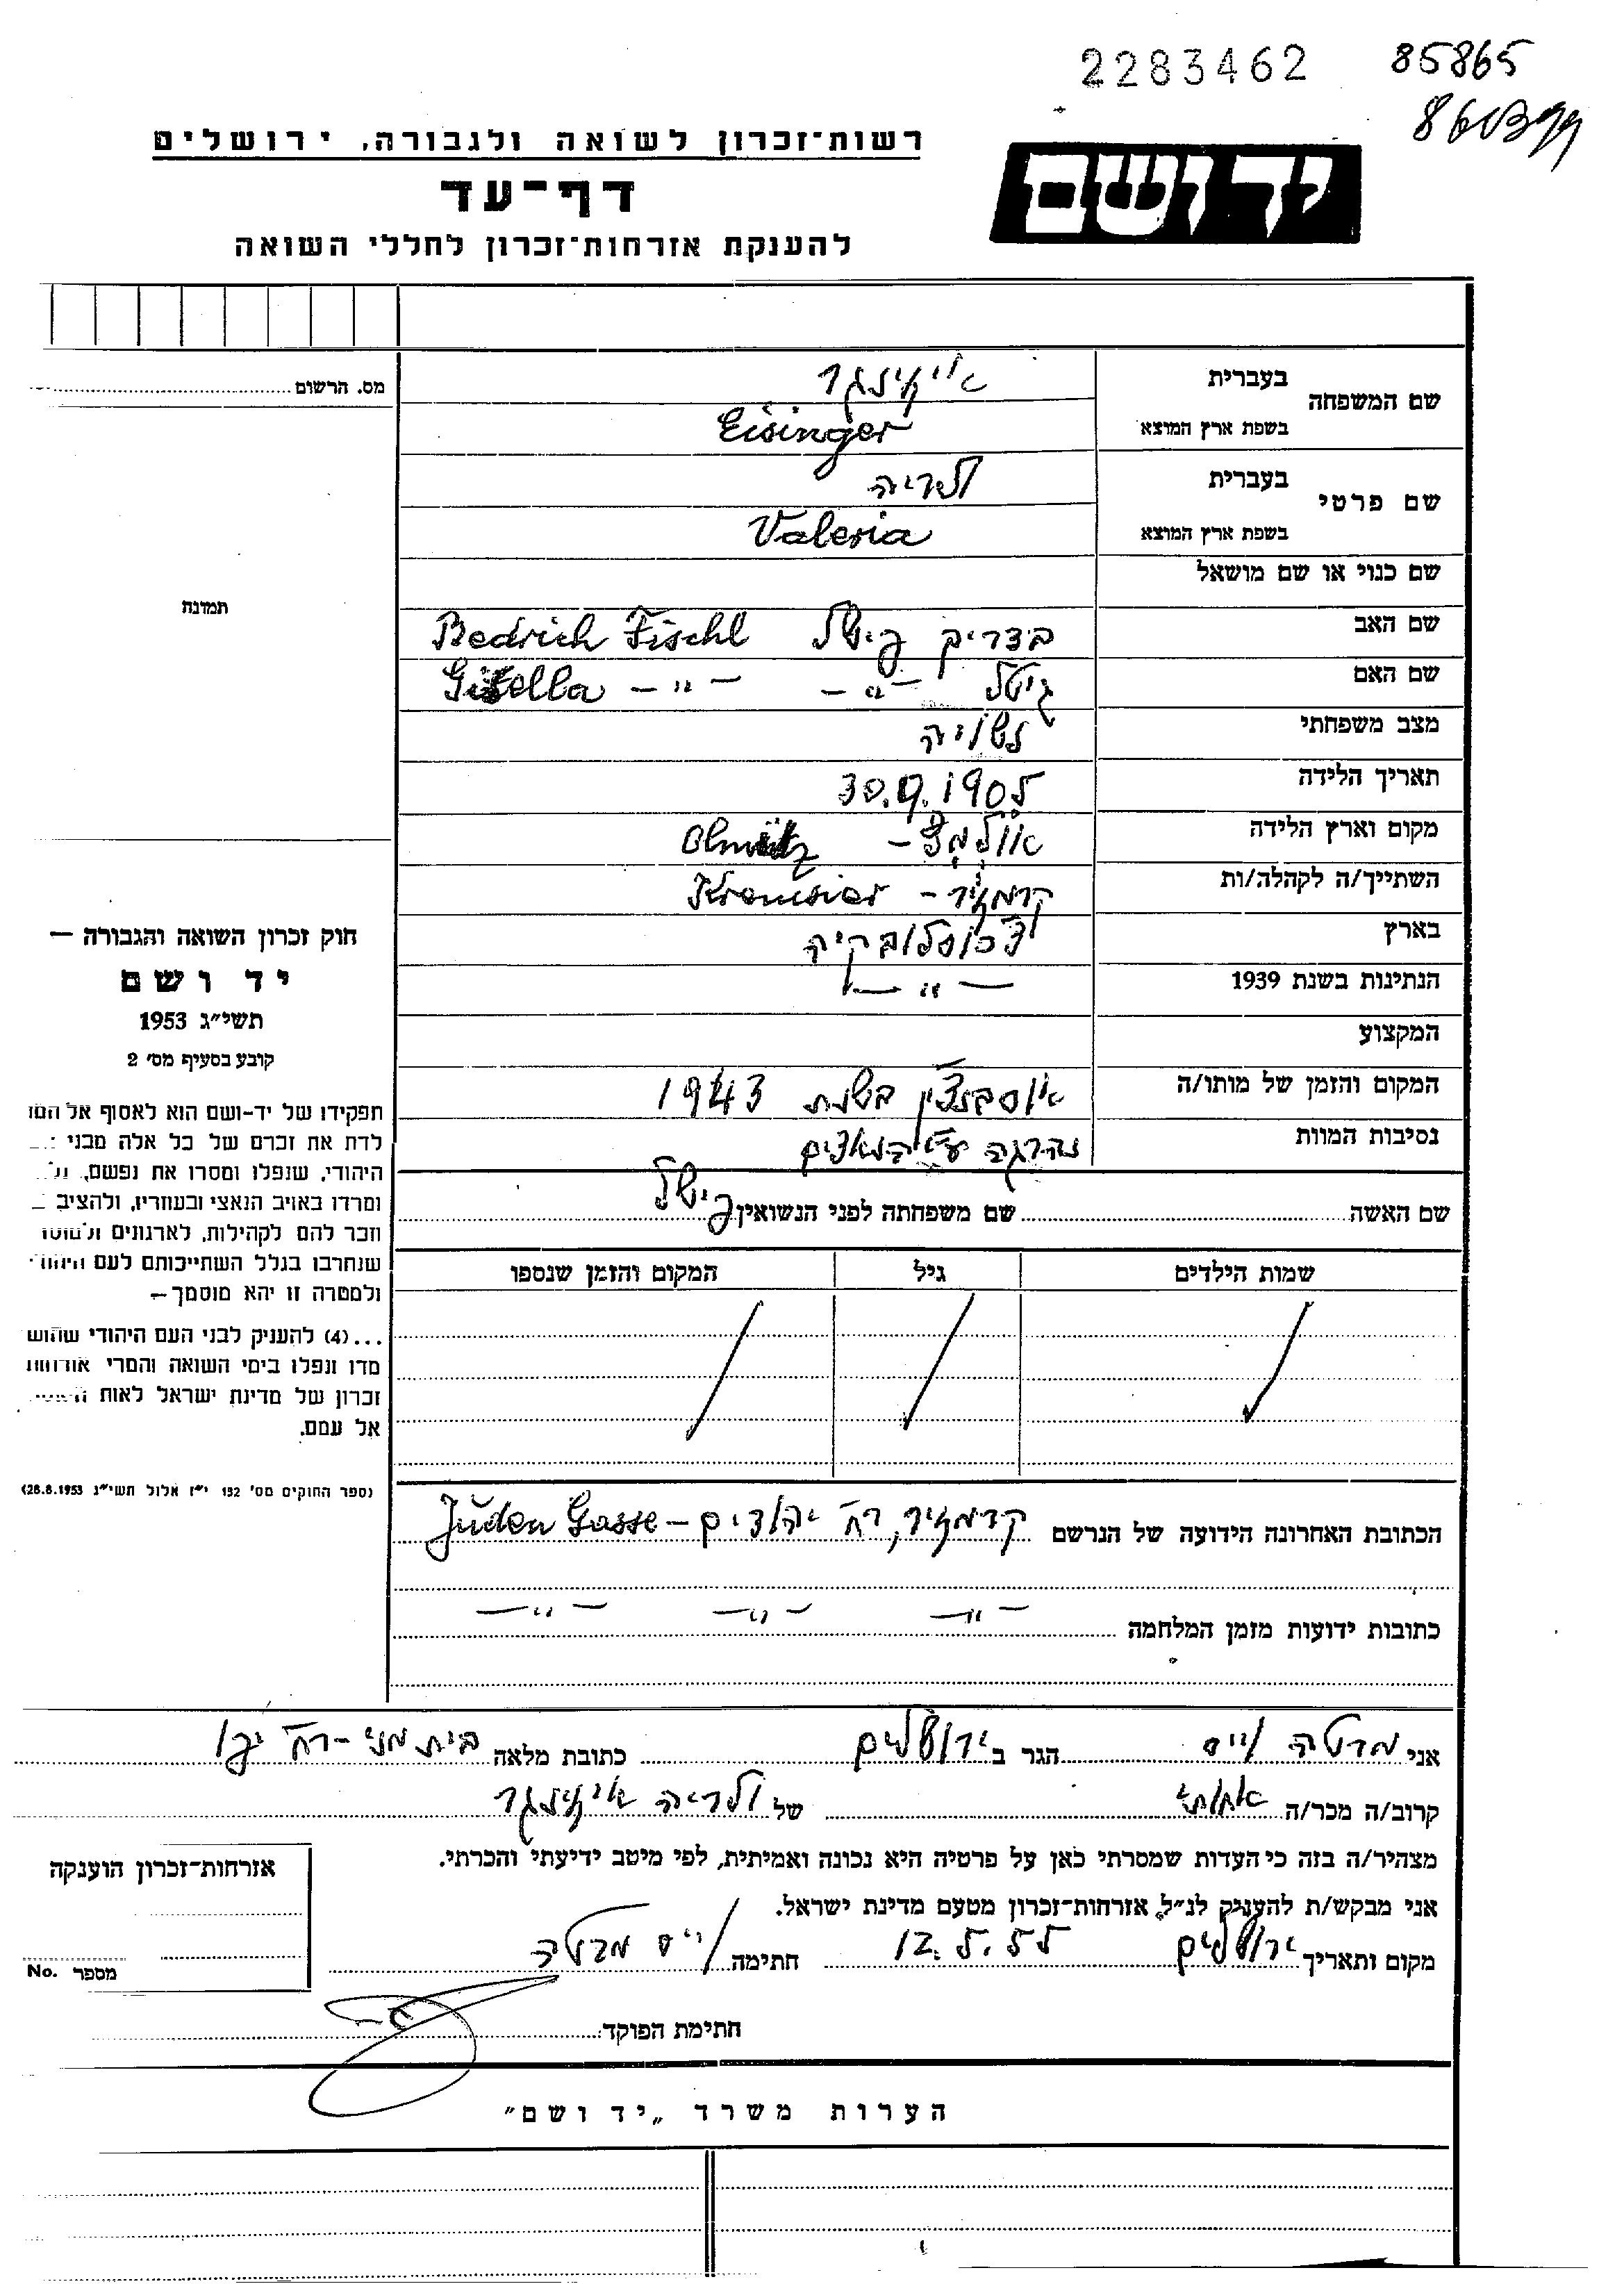 2283462
85865
רשות־זכרון לשואה ולגבורה, ירושלים
דף־עד
להענקת אזרחות־זכרון לחללי השואה
יד ושם
מס. הרשום
שם המשפחה בעברית אייזינגר
בשפת ארץ המוצא Eisinger
שם פרטי בעברית ולריה
בשפת ארץ המוצא Valeria
שם כנוי או שם מושאל
תמונה
שם האב בדריך פישל Bedrich Fischl
שם האם גיטל -"- Gisella -"-
מצב משפחתי נשויה
תאריך הלידה 30.9.1905
מקום וארץ הלידה אולמיץ - Olmütz
השתייך/ה לקהלה/ות קרמזיר - Kremsier
בארץ צ'כוסלובקיה
הנתינות בשנת 1939 -"-
המקצוע
המקום והזמן של מותו/ה אוסבנצין בשנת 1943
נסיבות המוות נהרגה ע"י הנאצים
שם האשה שם משפחתה לפני הנשואין פישל
שמות הילדים גיל המקום והזמן שנספו
הכתובת האחרונה הידועה של הנרשם קרמזיר, רח' יהודים - Juden Gasse
כתובות ידועות מזמן המלחמה -"- -"- -"-
חוק זכרון השואה והגבורה —
יד ושם
תשי״ג 1953
קובע בסעיף מס׳ 2
תפקידו של יד-ושם הוא לאסוף אל
לדת את זכרם של כל אלה מבני
היהודי, שנפלו ומסרו את נפשם,
ומרדו באויב הנאצי ובעוזריו, ולהציב
וזכר להם לקהילות, לארגונים
שנחרבו בגלל השתייכותם לעם
ולמטרה זו יהא מוסמך—
...(4) להעניק לבני העם היהודי
מדו ונפלו בימי השואה והמרי אזרחות
זכרון של מדינת ישראל לאות
אל עמם.
(ספר החוקים מס׳ 132 י״ז אלול תשי״ג 28.8.1953)
אני מרטה וייס הגר ב ירושלים כתובת מלאה בית מני - רח' יפו
קרוב/ה מכר/ה אחותי של ולריה אייזינגר
מצהיר/ה בזה כי העדות שמסרתי כאן על פרטיה היא נכונה ואמיתית, לפי מיטב ידיעתי והכרתי.
אני מבקש/ת להעניק לנ״ל אזרחות־זכרון מטעם מדינת ישראל.
מקום ותאריך ירושלים 12.5.55 חתימה וייס מרטה
אזרחות־זכרון הוענקה
מספר No.
חתימת הפוקד
הערות משרד „יד ושם"